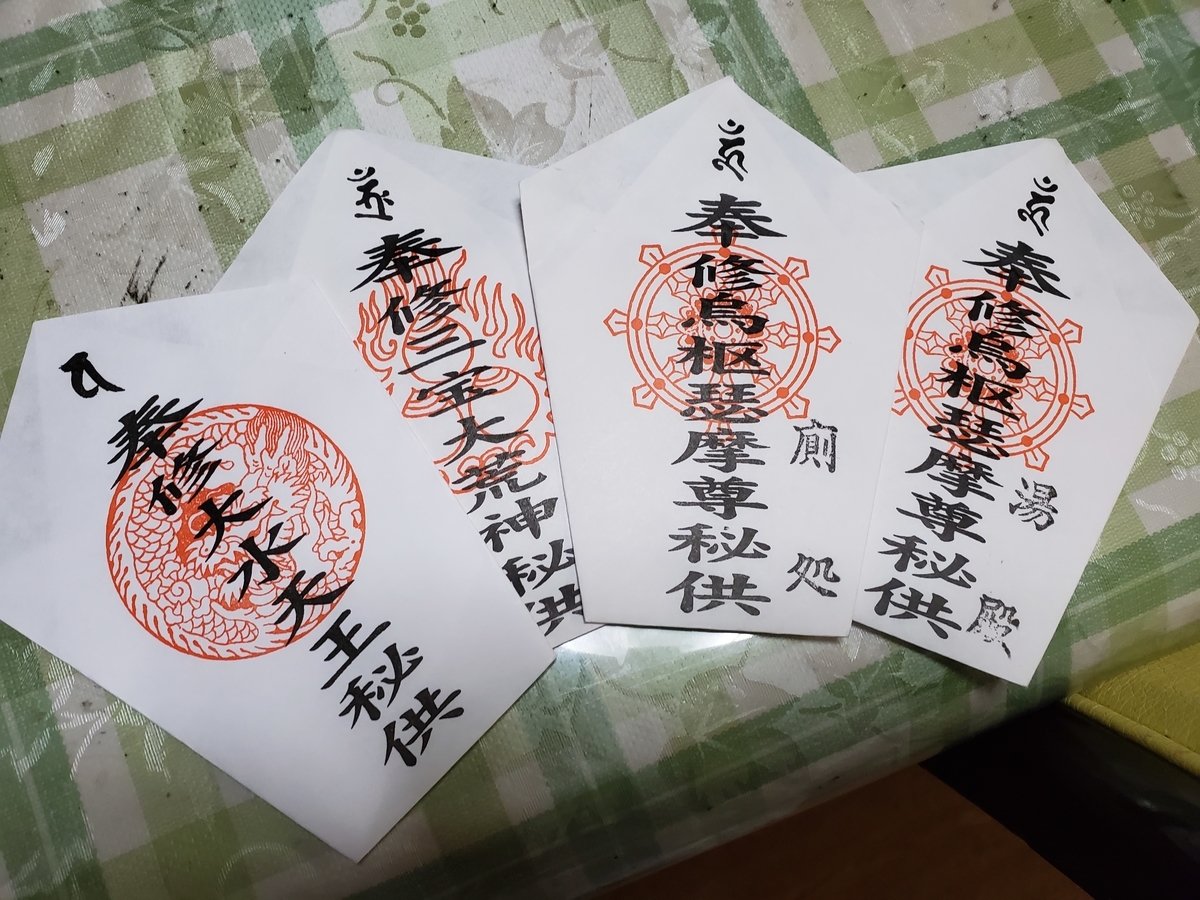 奉修大水天王秘供
奉修三宝大荒神秘供
奉修烏枢瑟摩尊秘供
廁処
奉修烏枢瑟摩尊秘供
湯殿